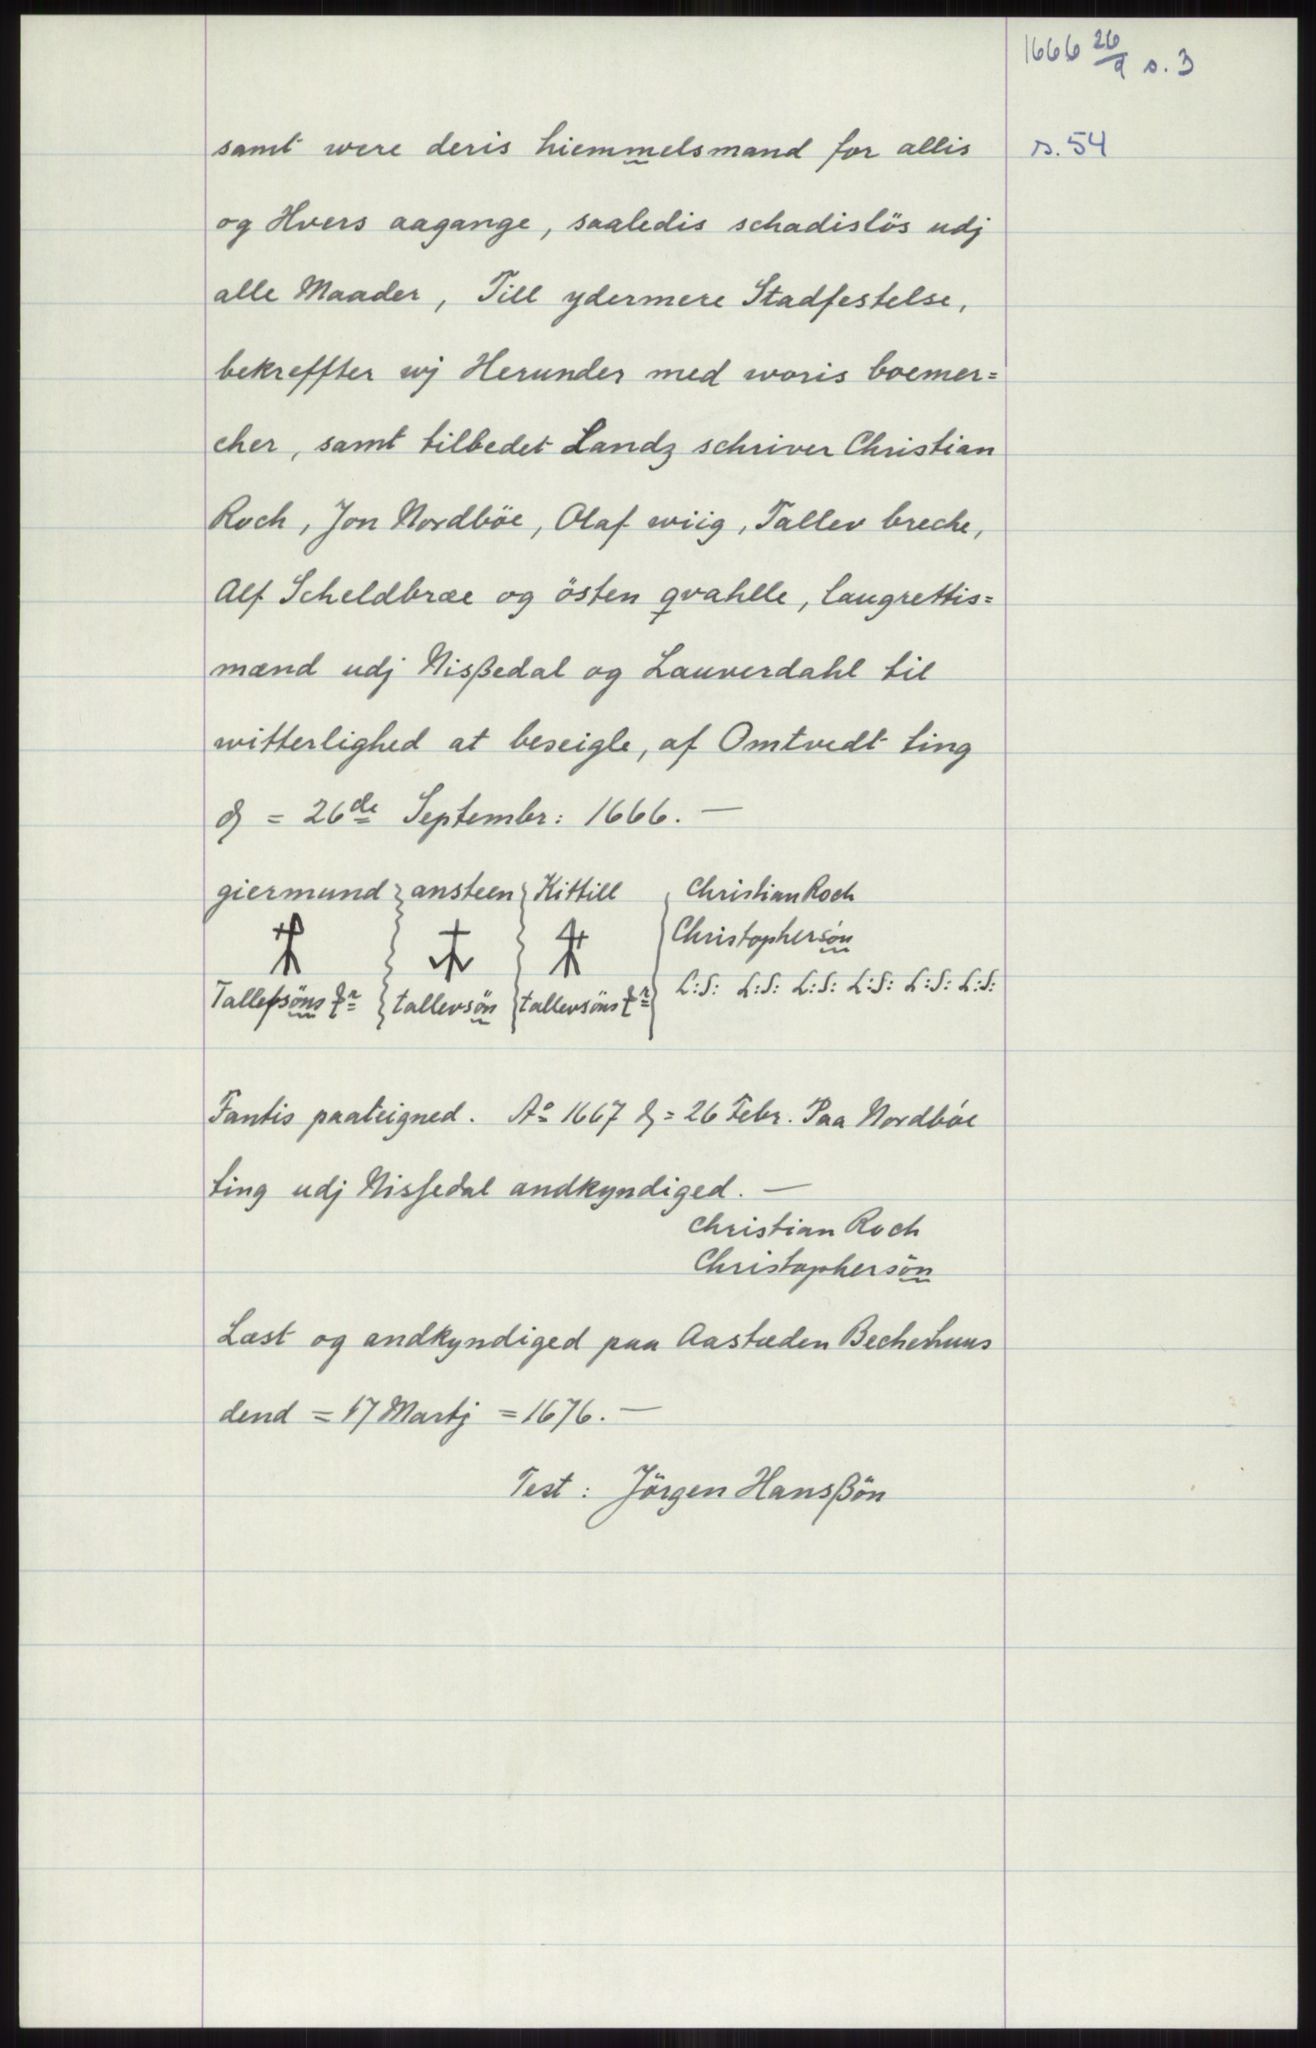 1666 26/9 s. 3
samt were deris hiemmelsmand for allis
s. 54
og Hvers aagange, saaledis schadisløs udj
alle Maader, Till ydermere Stadfestelse,
bekreffter wj Herunder med woris boemer=
cher, samt tilbedet Landz schriver Christian
Roch, Jon Nordböe, Olaf wiig, Tallev breche,
Alf Scheldbræ og östen qvahlle, laugrettis=
mænd udj Nißedal og Lauverdahl til
witterlighed at beseigle, af Omtvedt ting
= 26de Septembr: 1666. —
giermund ansteen Kittill Christian Roch
Christophersön
Tallefsöns tallevsön tallevsöns L:S: L:S: L:S: L:S: L:S: L:S:
Fantis paateigned. Ao 1667 = 26 Febr. Paa Nordböe
ting udj Nissedal andkyndiged. —
Christian Roch
Christophersön
Læst og andkyndiged paa Aastæden Becherhuus
dend = 17 Martj = 1676. —
Test: Jörgen Hansßön